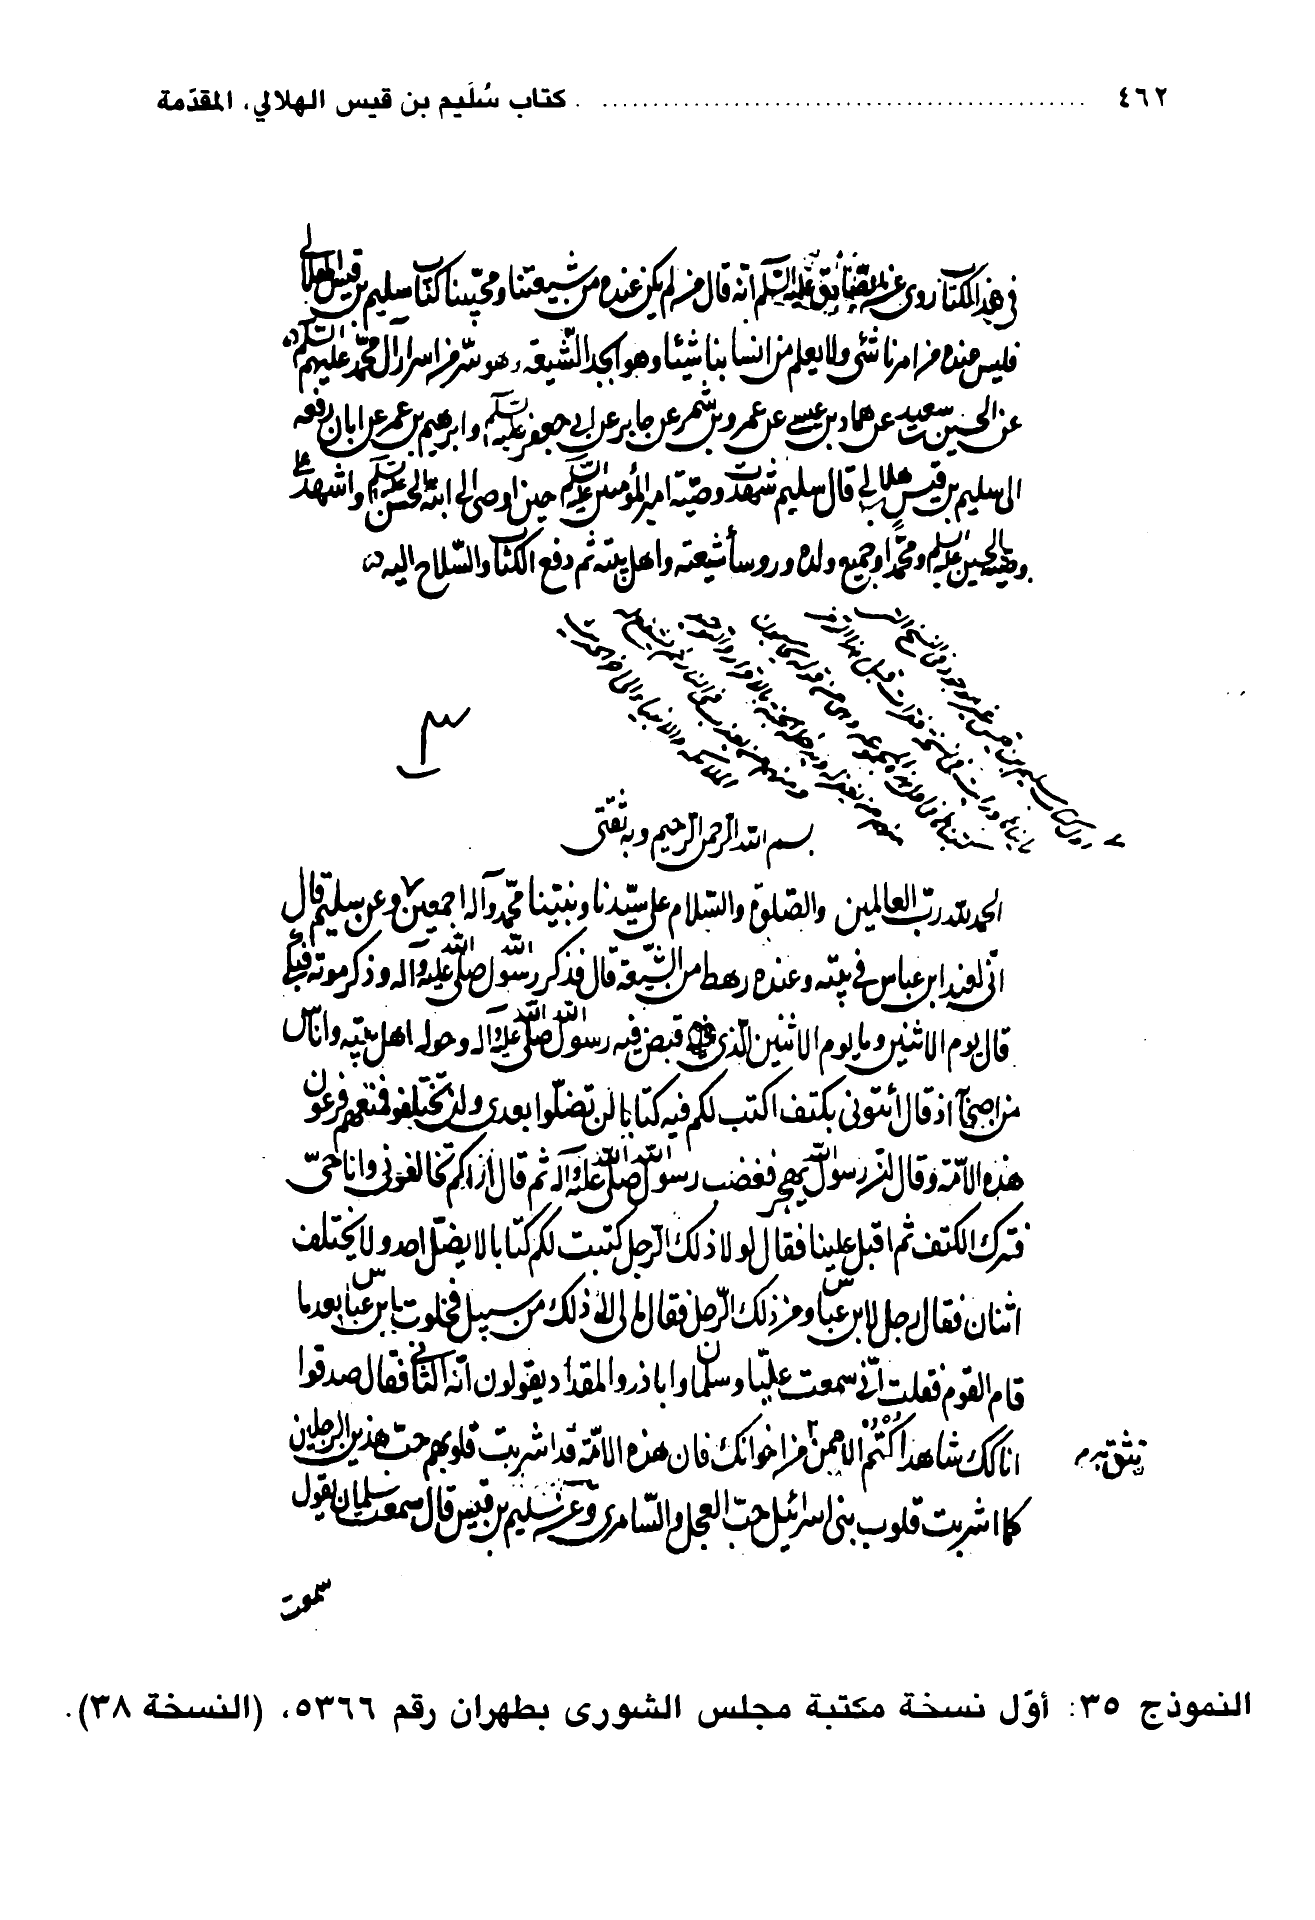 ٤٦٢ ........ كتاب سُلَيم بن قيس الهلالي، المقدّمة
في هذا الكتاب روى عن الصادق عليه السلم انه قال من لم يكن عنده من شيعتنا ومحبينا كتاب سليم بن قيس الهلالي
فليس عنده من امرنا شئ ولا يعلم من اسبابنا شيئا وهو ابجد الشيعه وهو سر من اسرار آل محمد عليهم السلم
عن الحسين بن سعيد عن حماد بن عيسى عن عمرو بن شمر عن جابر عن ابي جعفر عليه السلم وابرهيم بن عمر عن ابان رفعه
الى سليم بن قيس هلالي قال سليم شهدت وصية امير المؤمنين عليه السلم حين اوصى الى ابنه الحسن عليه السلم واشهد على
وصيته الحسين عليه السلم ومحمدا وجميع ولده وروسأ شيعته واهل بيته ثم دفع الكتاب والسلاح اليه
بسم الله الرحمن الرحيم وبه ثقتي
الحمد لله رب العالمين والصلوة والسلام على سيدنا ونبينا محمد وآله اجمعين وعن سليم قال
انّي لعند ابن عباس في بيته وعنده رهط من الشيعة قال فذكر رسول الله صلى الله عليه وآله وذكر موته فبكى
قال يوم الاثنين وما يوم الاثنين الذي قبض فيه رسول الله صلى الله عليه وآله وحوله اهل بيته واناس
من اصحابه اذ قال أئتوني بكتف اكتب لكم فيه كتابا لن تضلوا بعدى ولن تختلفوا فمنعهم فرعون
هذه الامة وقال ان رسول الله يهجر فغضب رسول الله صلى الله عليه وآله ثم قال اراكم تخالفوني وانا حيّ
فترك الكتف ثم اقبل علينا فقال لولا ذلك الرجل كتبت لكم كتابا لا يضل احد ولا يختلف
اثنان فقال رجل لابن عباس ومن ذلك الرجل فقال مالى الى ذلك من سبيل فخلوت بابن عباس بعد ما
قام القوم فقلت انّي سمعت عليا وسلمان واباذر والمقداد يقولون انه الثاني فقال صدقوا
انا لك شاهد اكتم الا ممن تثق بهم من اخوانك فان هذه الامة قد اشربت قلوبهم حب هذين الرجلين
كما اشربت قلوب بنى اسرائيل حب العجل والسامرى وعن سليم بن قيس قال سمعت سلمان يقول
سمعت
النموذج ٣٥: أوّل نسخة مكتبة مجلس الشورى بطهران رقم ٥٣٦٦، (النسخة ٣٨).